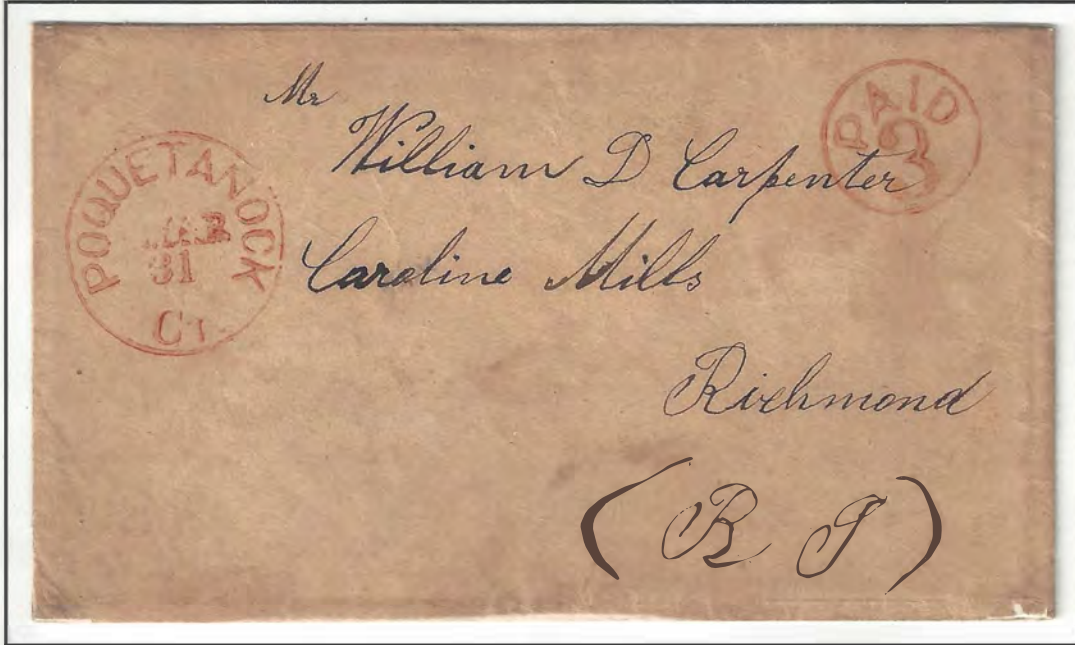 POQUETANOCK
MAR
31
CT
PAID
3
Mr
William D Carpenter
Caroline Mills
Richmond
(R I)